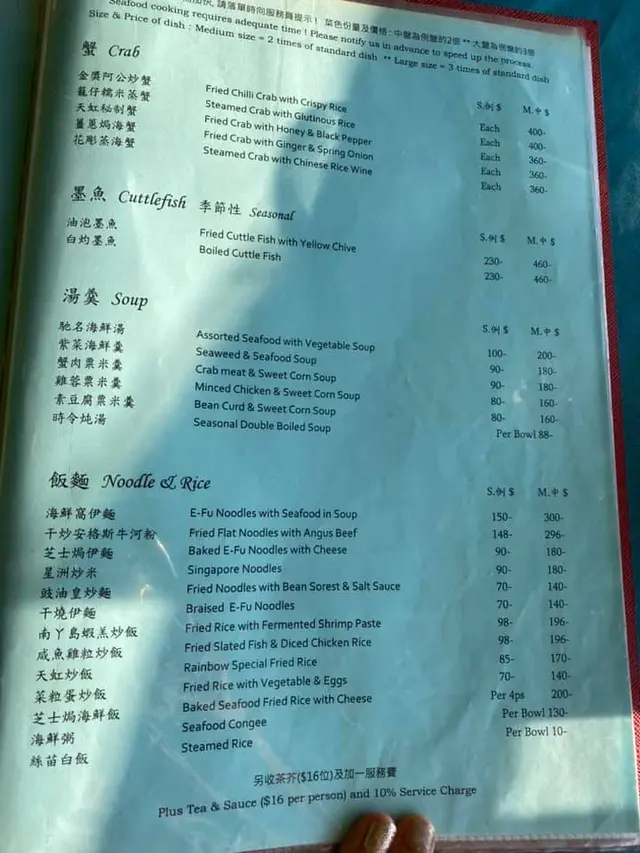 請落單時向服務員提示! 菜色份量及價格:中盤為例盤的2倍 ** 大盤為例盤的3倍
Seafood cooking requires adequate time! Please notify us in advance to speed up the process.
Size & Price of dish : Medium size = 2 times of standard dish ** Large size = 3 times of standard dish
蟹 Crab S.例 $ M.中 $
金獎阿公炒蟹 Fried Chilli Crab with Crispy Rice Each 400-
籠仔糯米蒸蟹 Steamed Crab with Glutinous Rice Each 400-
天虹秘制蟹 Fried Crab with Honey & Black Pepper Each 360-
薑蔥焗海蟹 Fried Crab with Ginger & Spring Onion Each 360-
花彫蒸海蟹 Steamed Crab with Chinese Rice Wine Each 360-
墨魚 Cuttlefish 季節性 Seasonal S.例 $ M.中 $
油泡墨魚 Fried Cuttle Fish with Yellow Chive 230- 460-
白灼墨魚 Boiled Cuttle Fish 230- 460-
湯羹 Soup S.例 $ M.中 $
馳名海鮮湯 Assorted Seafood with Vegetable Soup 100- 200-
紫菜海鮮羹 Seaweed & Seafood Soup 90- 180-
蟹肉粟米羹 Crab meat & Sweet Corn Soup 90- 180-
雞蓉粟米羹 Minced Chicken & Sweet Corn Soup 80- 160-
素豆腐粟米羹 Bean Curd & Sweet Corn Soup 80- 160-
時令炖湯 Seasonal Double Boiled Soup Per Bowl 88-
飯麵 Noodle & Rice S.例 $ M.中 $
海鮮窩伊麵 E-Fu Noodles with Seafood in Soup 150- 300-
干炒安格斯牛河粉 Fried Flat Noodles with Angus Beef 148- 296-
芝士焗伊麵 Baked E-Fu Noodles with Cheese 90- 180-
星洲炒米 Singapore Noodles 90- 180-
豉油皇炒麵 Fried Noodles with Bean Sorest & Salt Sauce 70- 140-
干燒伊麵 Braised E-Fu Noodles 70- 140-
南丫島蝦羔炒飯 Fried Rice with Fermented Shrimp Paste 98- 196-
咸魚雞粒炒飯 Fried Slated Fish & Diced Chicken Rice 98- 196-
天虹炒飯 Rainbow Special Fried Rice 85- 170-
菜粒蛋炒飯 Fried Rice with Vegetable & Eggs 70- 140-
芝士焗海鮮飯 Baked Seafood Fried Rice with Cheese Per 4ps 200-
海鮮粥 Seafood Congee Per Bowl 130-
絲苗白飯 Steamed Rice Per Bowl 10-
另收茶芥($16位)及加一服務費
Plus Tea & Sauce ($16 per person) and 10% Service Charge